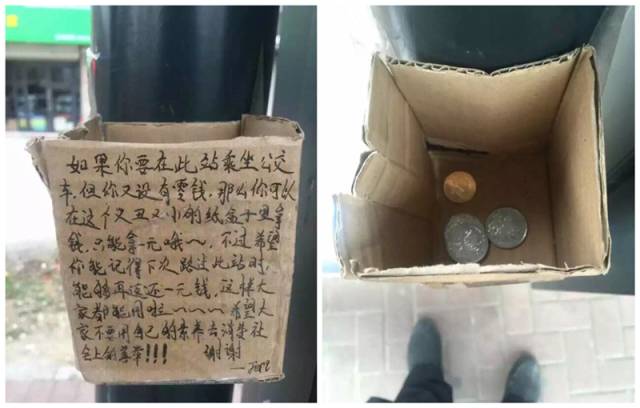 如果你要在此站乘坐公交
车,但你又没有零钱,那么你可以
在这个又丑又小的纸盒子里拿
钱,只能拿一元哦~~,不过希望
你能记得下次路过此站时,
能够再返还一元钱,这样大
家都能用啦~~~~希望大
家不要用自己的素养去消失社
会上的善举!!! 谢谢